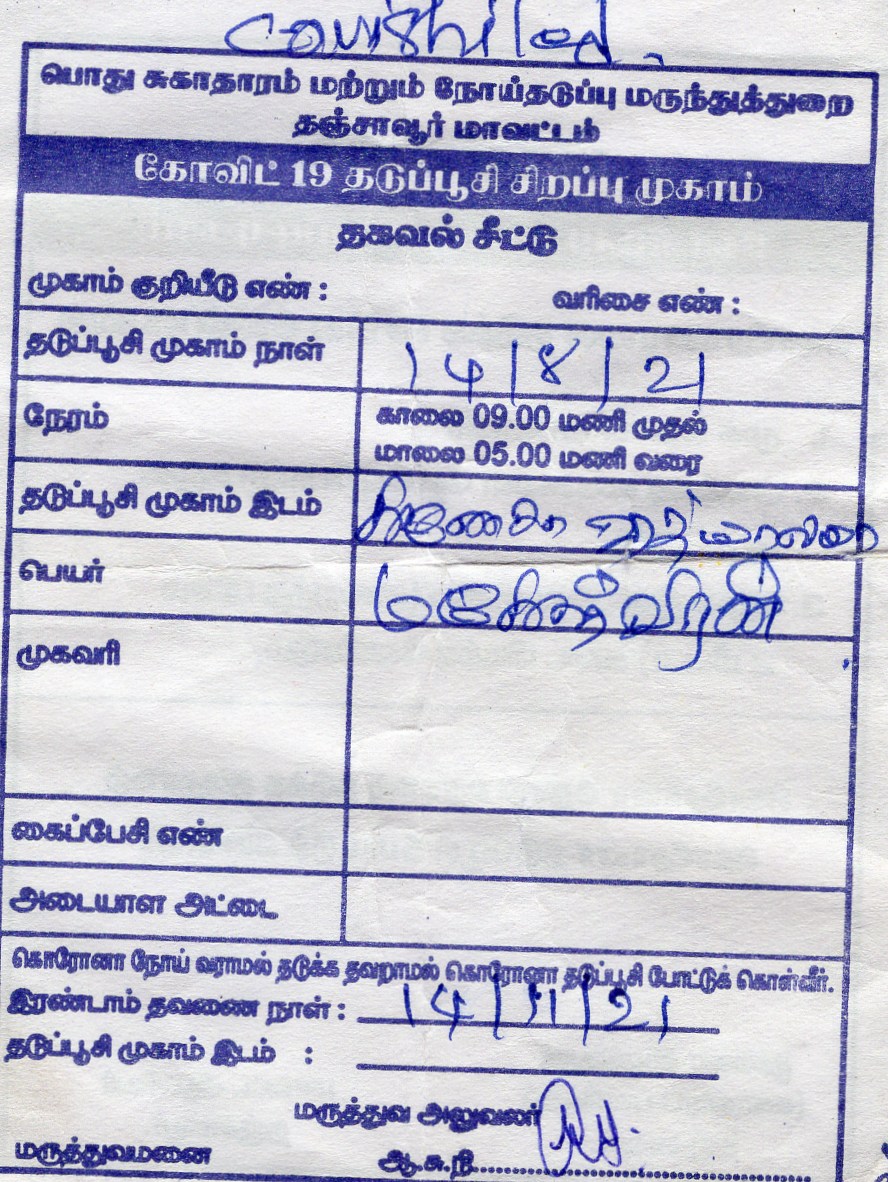 Covishiled
பொது சுகாதாரம் மற்றும் நோய்தடுப்பு மருந்துத்துறை
தஞ்சாவூர் மாவட்டம்
கோவிட் 19 தடுப்பூசி சிறப்பு முகாம்
தகவல் சீட்டு
முகாம் குறியீடு எண் : வரிசை எண் :
தடுப்பூசி முகாம் நாள் 14/8/21
நேரம் காலை 09.00 மணி முதல்
மாலை 05.00 மணி வரை
தடுப்பூசி முகாம் இடம்
பெயர் மகேஷ்வரன்
முகவரி
கைப்பேசி எண்
அடையாள அட்டை
கொரோனா நோய் வராமல் தடுக்க தவறாமல் கொரோனா தடுப்பூசி போட்டுக் கொள்வீர்.
இரண்டாம் தவணை நாள் : 14/11/21
தடுப்பூசி முகாம் இடம் :
மருத்துவ அலுவலர்
மருத்துவமனை ஆ.சு.நி.